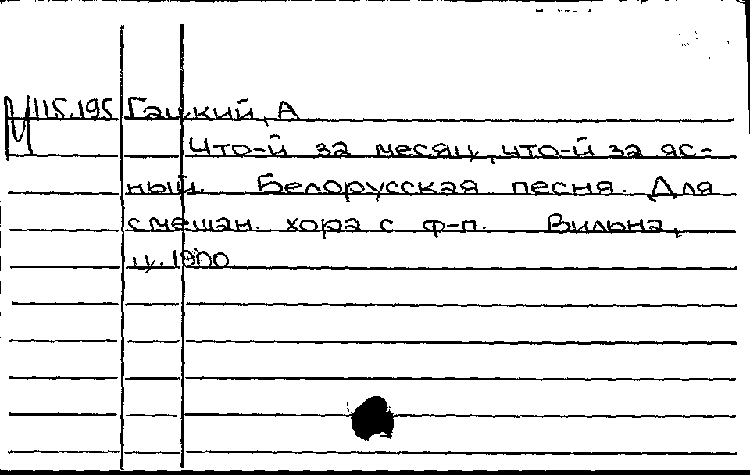 М 115.195 Гацкий, А
Что-й за месяц, что-й за яс-
ный. Белорусская песня. Для
смешан. хора с ф-п. Вильна,
ц. 1900